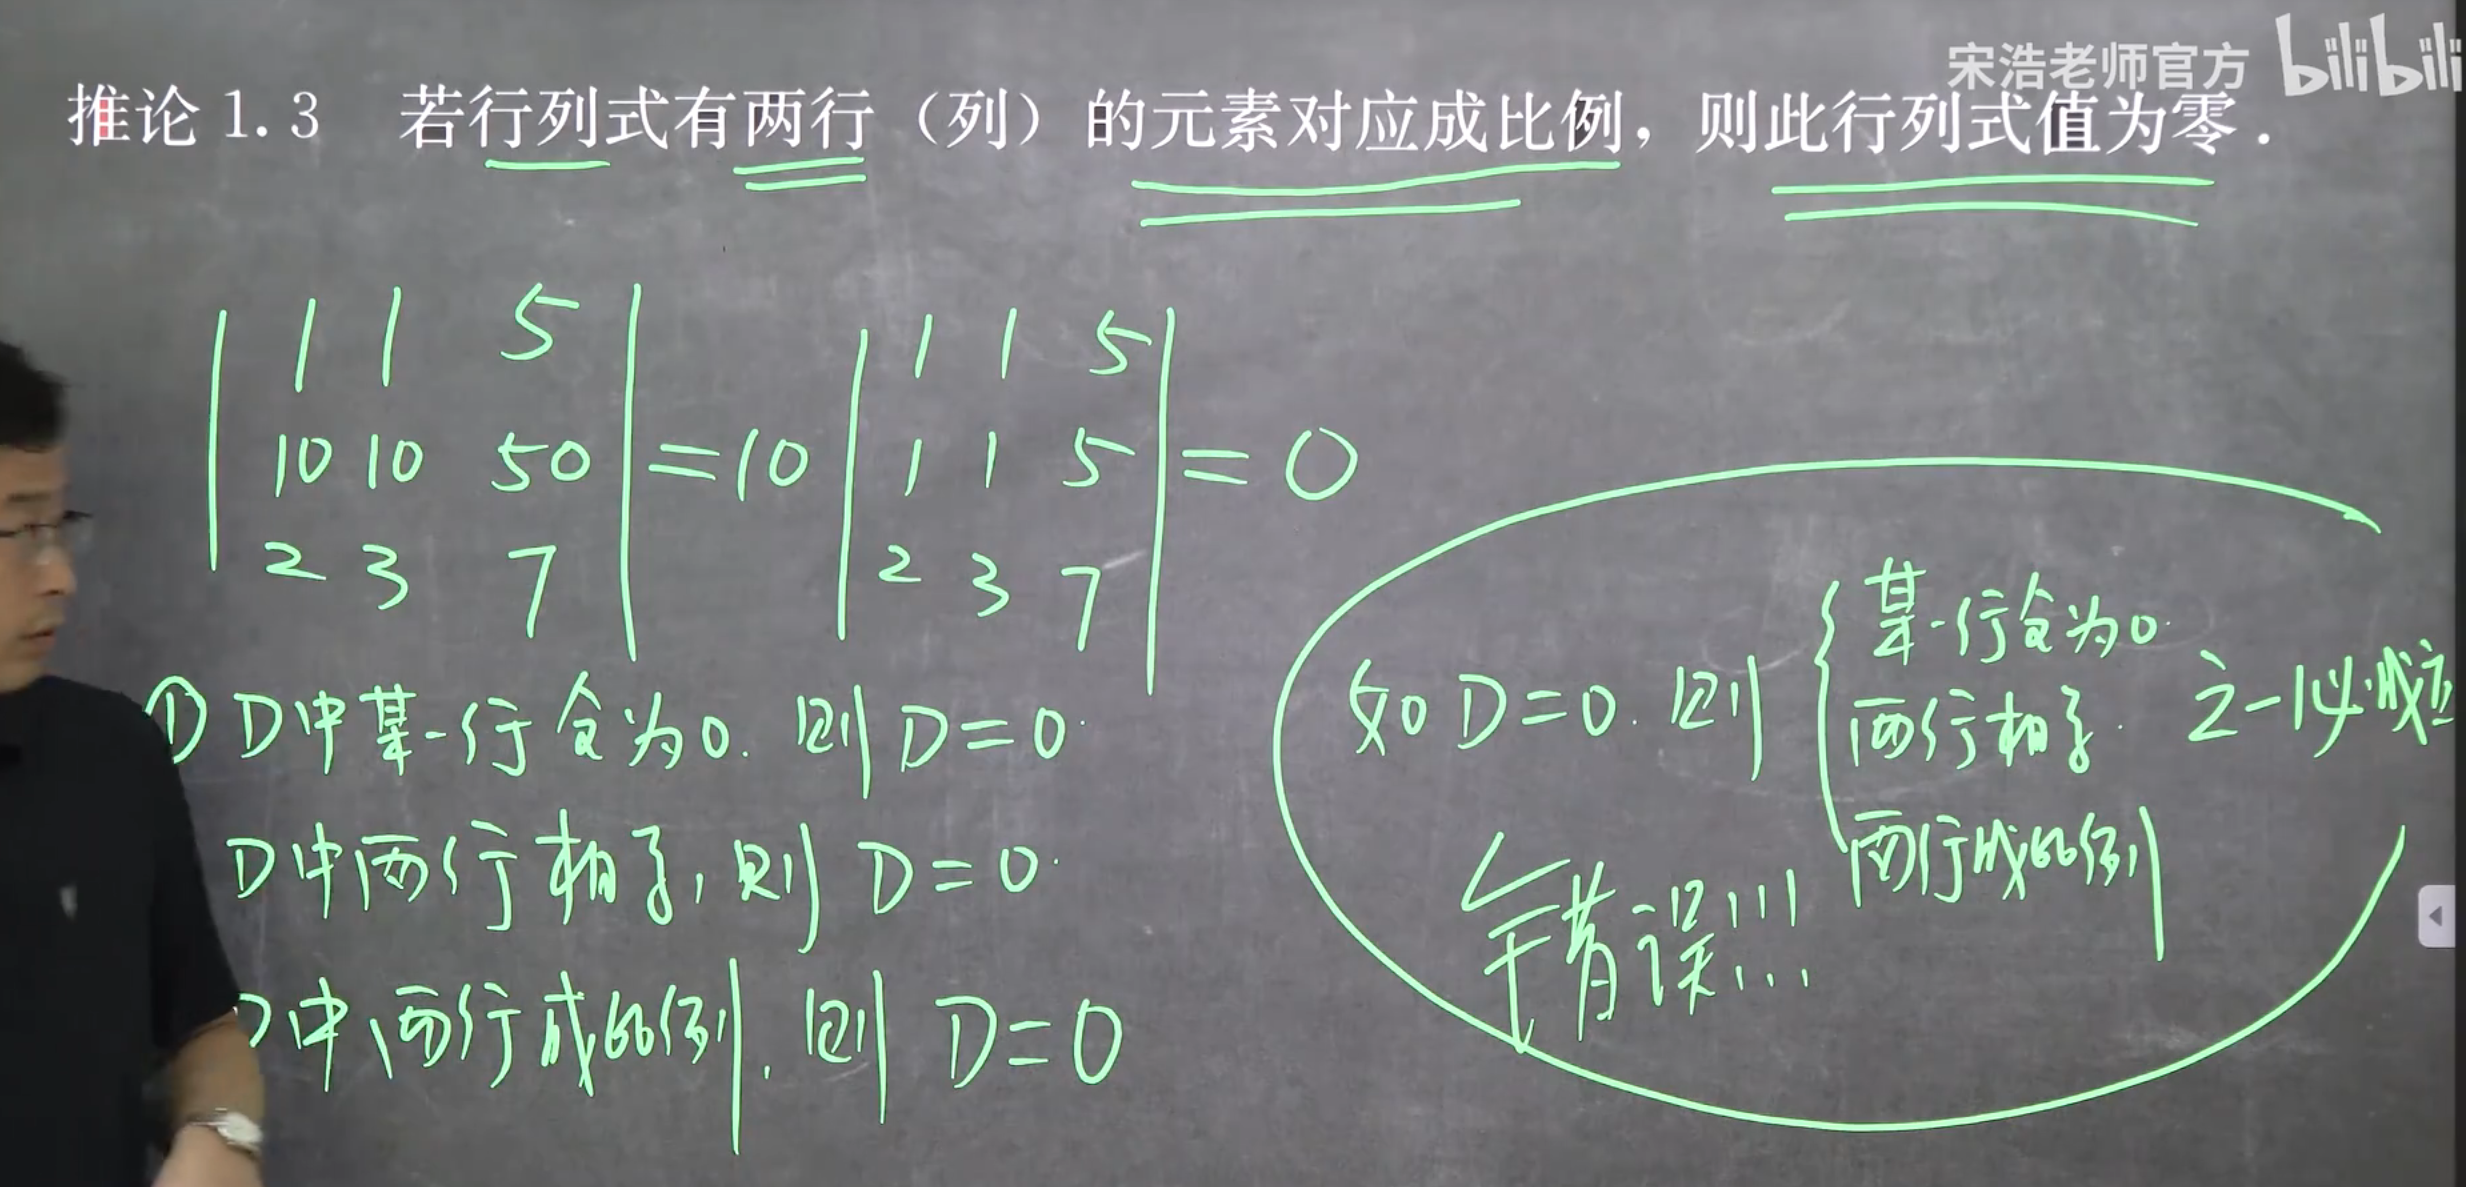 宋浩老师官方 bilibili
推论 1.3 若行列式有两行（列）的元素对应成比例，则此行列式值为零.
1 1 5
10 10 50
2 3 7
=10
1 1 5
1 1 5
2 3 7
= 0
① D中某一行全为0. 则 D=0.
D中两行相等, 则 D=0.
D中两行成比例. 则 D=0
如 D=0. 则
某一行全为0.
两行相等.
两行成比例
之一必成立
错误!!!